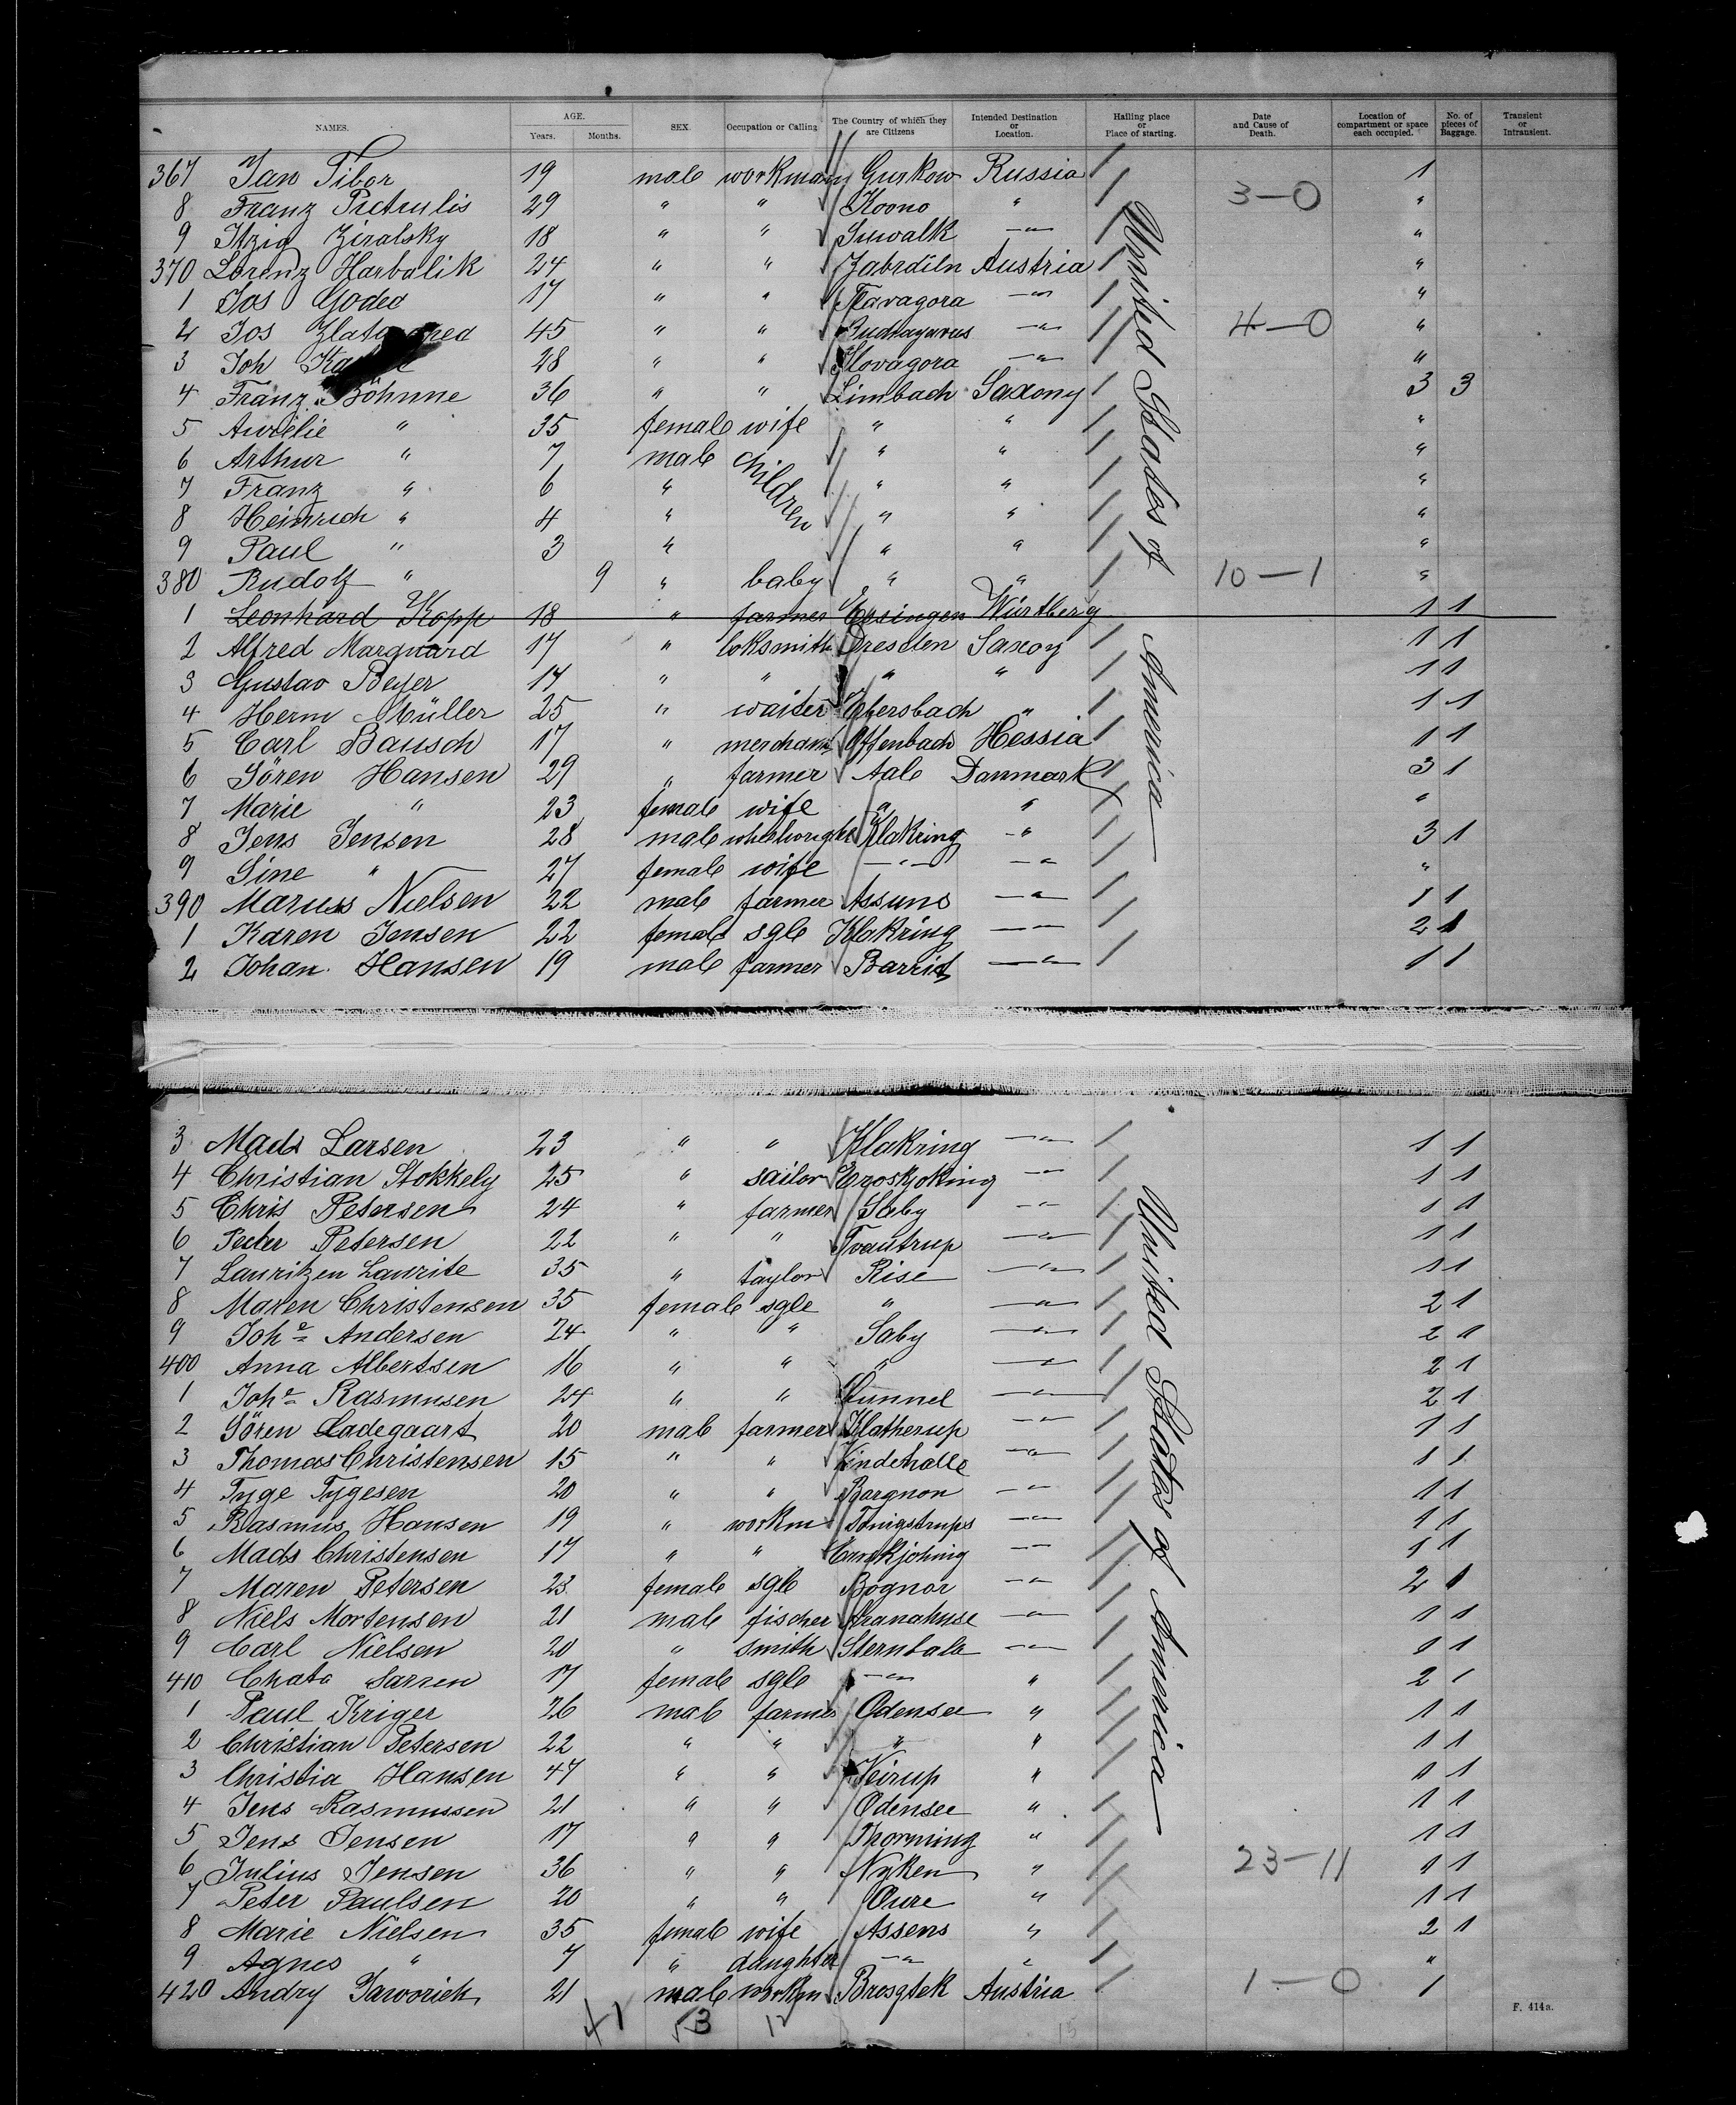 NAMES. AGE. Years. Months. SEX. Occupation or Calling The Country of which they are Citizens Intended Destination or Location. Hailing place or Place of starting. Date and Cause of Death. Location of compartment or space each occupied. No. of pieces of Baggage. Transient or Intransient.
367 Jan Tibor 19 male workman Gurkow Russia 1
8 Franz Pietrulis 29 " " Kovno " 3—0 "
9 Itzig Ziralsky 18 " " Suwalk —"— "
370 Lorenz Harbalik 24 " " Zabrdiln Austria "
1 Jos Godea 17 " " —"— "
2 Jos 45 " " —"— 4—0 "
3 Joh 28 " " Slovagora —"— "
4 Franz Böhnne 36 " " Limbach Saxony 3 3
5 Aurelie " 35 female wife " " "
6 Arthur " 7 male children " " "
7 Franz " 6 " " " "
8 Heinrich " 4 " " " "
9 Paul " 3 " " " "
380 Rudolf " 9 " baby " " 10—1 "
1 Leonhard Kopp 18 " farmer Würtberg 1 1
2 Alfred Marguard 17 " loksmith Dresden Saxoy 1 1
3 Gustav Beyer 17 " " " " 1 1
4 Herm Müller 25 " waiter Ebersbach " 1 1
5 Carl Bausch 17 " merchant Offenbach Hessia 1 1
6 Sören Hansen 29 " farmer Aale Danmark 3 1
7 Marie " 23 female wife " " "
8 Jens Jensen 28 male whelwright Klakring " 3 1
9 Sine " 27 female wife —"— —"— "
390 Marius Nielsen 22 male farmer Assuns —"— 1 1
1 Karen Jensen 22 female sgle Klakring —"— 2 1
2 Johan Hansen 19 male farmer Barrit —"— 1 1
United States of America
3 Mads Larsen 23 " " Klakring —"— 1 1
4 Christian Stokkely 25 " sailor —"— 1 1
5 Chris Petersen 24 " farmer Saby —"— 1 1
6 Peeter Petersen 22 " " Tvautrup —"— 1 1
7 Lauritzen Laurite 35 " taylor Rise —"— 1 1
8 Maren Christensen 35 female sgle " —"— 2 1
9 Johe Andersen 24 " " Saby —"— 2 1
400 Anna Albertsen 16 " " " —"— 2 1
1 Johe Rasmusen 24 " " —"— 2 1
2 Sören Ladegaart 20 male farmer Klatherup —"— 1 1
3 Thomas Christensen 15 " " Vindehalle —"— 1 1
4 Tyge Tygesen 20 " " Bargnon —"— 1 1
5 Rasmus Hansen 19 " workm —"— 1 1
6 Mads Christensen 17 " " —"— 1 1
7 Maren Petersen 23 female sgle Bognor —"— 2 1
8 Niels Mortensen 21 male fischer —"— 1 1
9 Carl Nielsen 20 " smith —"— 1 1
410 Chata Sarren 17 female sgle —"— " 2 1
1 Paul Kriger 26 male farmer Odensee " 1 1
2 Christian Petersen 22 " " " " 1 1
3 Christia Hansen 47 " " Veirup " 1 1
4 Jens Rasmussen 21 " " Odensee " 1 1
5 Jens Jensen 17 " " Thorming " 1 1
6 Julius Jensen 36 " " Nyken " 23—11 1 1
7 Peter Paulsen 20 " " Oure " 1 1
8 Marie Nielsen 35 female wife Assens " 2 1
9 Agnes " 7 " daughter —"— " "
420 Andry Jaworiek 21 male workm Brosgtek Austria 1—0 1
United States of America
41 53 12 15
F. 414a.